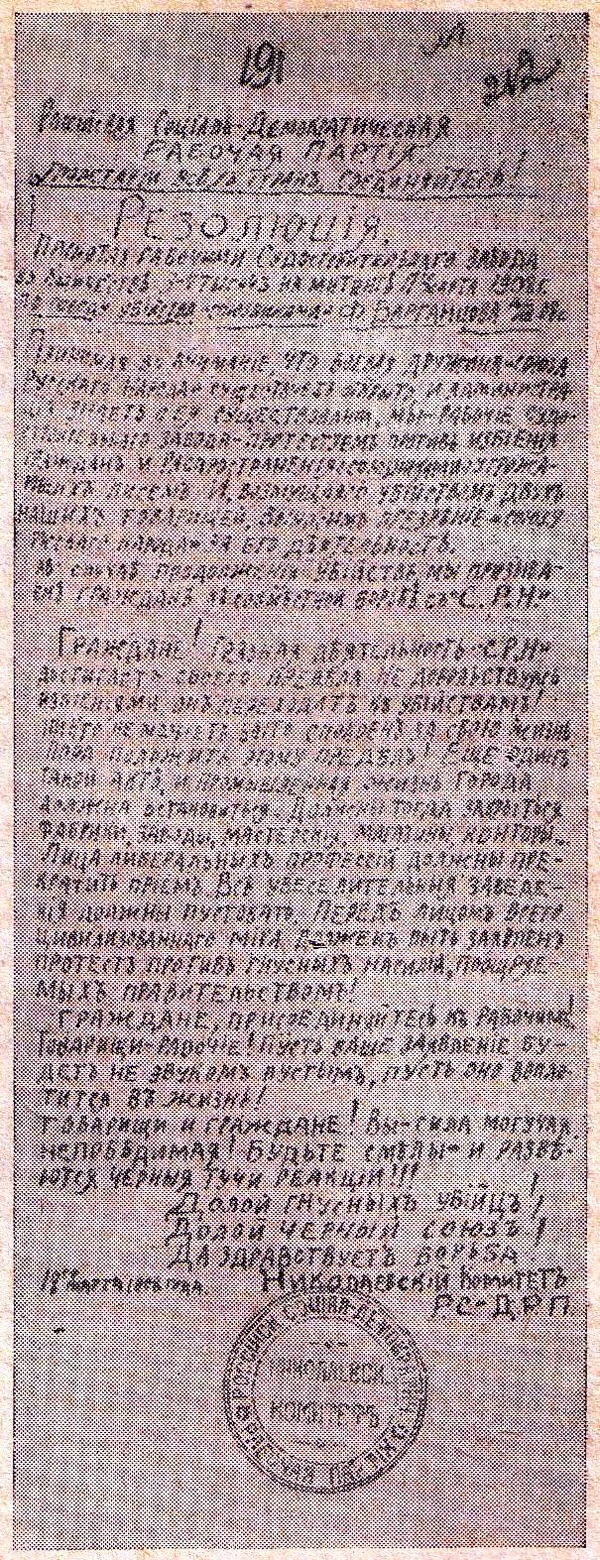 191
212
Россійская Соціалъ-Демократическая
Рабочая Партія
Пролетаріи всѣхъ странъ, соединяйтесь!
Резолюція,
Принятая рабочими Судостроительнаго завода
въ количествѣ на митингѣ марта 1908 г.
по поводу убійства Ф. Варганцова
Принимая во вниманіе, что боевая дружина "союза
Русскаго народа" существуетъ открыто и администра-
ція знаетъ о ея существованіи, мы - рабочіе судо-
строительнаго завода - протестуемъ противъ избіенія
граждан и распространенія угрожа-
ющихъ писемъ и, возмущаясь убійствомъ двухъ
нашихъ товарищей, презрѣніе "союзу
русскаго народа" за его дѣятельность.
въ случаѣ продолженія убійствъ, мы призыва-
емъ гражданъ къ совмѣстной борьбѣ съ "С.Р.Н."
Граждане! Грязная дѣятельность "С.Р.Н"
достигаетъ своего предѣла не довольствуясь
избіеніями, онъ переходитъ къ убійствамъ!
Никто не можетъ быть спокоенъ за свою жизнь
Пора положить этому предѣлъ! Еще одинъ
такой актъ, и промышленная жизнь города
должна остановиться. Должны тогда закрыться
фабрики, заводы, мастерскія, магазины, конторы...
Лица либеральныхъ профессій должны пре-
кратить пріемъ. Всѣ увеселительныя заведе-
нія должны пустовать. Передъ лицомъ всего
цивилизованнаго міра долженъ быть заявленъ
протестъ противъ гнусныхъ насилій, поощряе-
мыхъ правительствомъ!
Граждане, присоединяйтесь къ рабочимъ!
Товарищи-рабочіе! Пусть ваше заявленіе бу-
детъ не звукомъ пустымъ, пусть оно вопло-
тится въ жизнь!
Товарищи и граждане! Вы - сила могучая,
непобѣдимая! Будьте смѣлы - и развѣ-
ются черныя тучи реакціи!!!
Долой гнусныхъ убійцъ!
Долой черный союзъ!
Да здравствуетъ борьба!
18го марта 1908 года. Николаевскій Комитетъ
Р.С.-Д.Р.П.
Россійск. Соціал-Демократич. Рабочая Партія
Николаевскі
Комитетъ